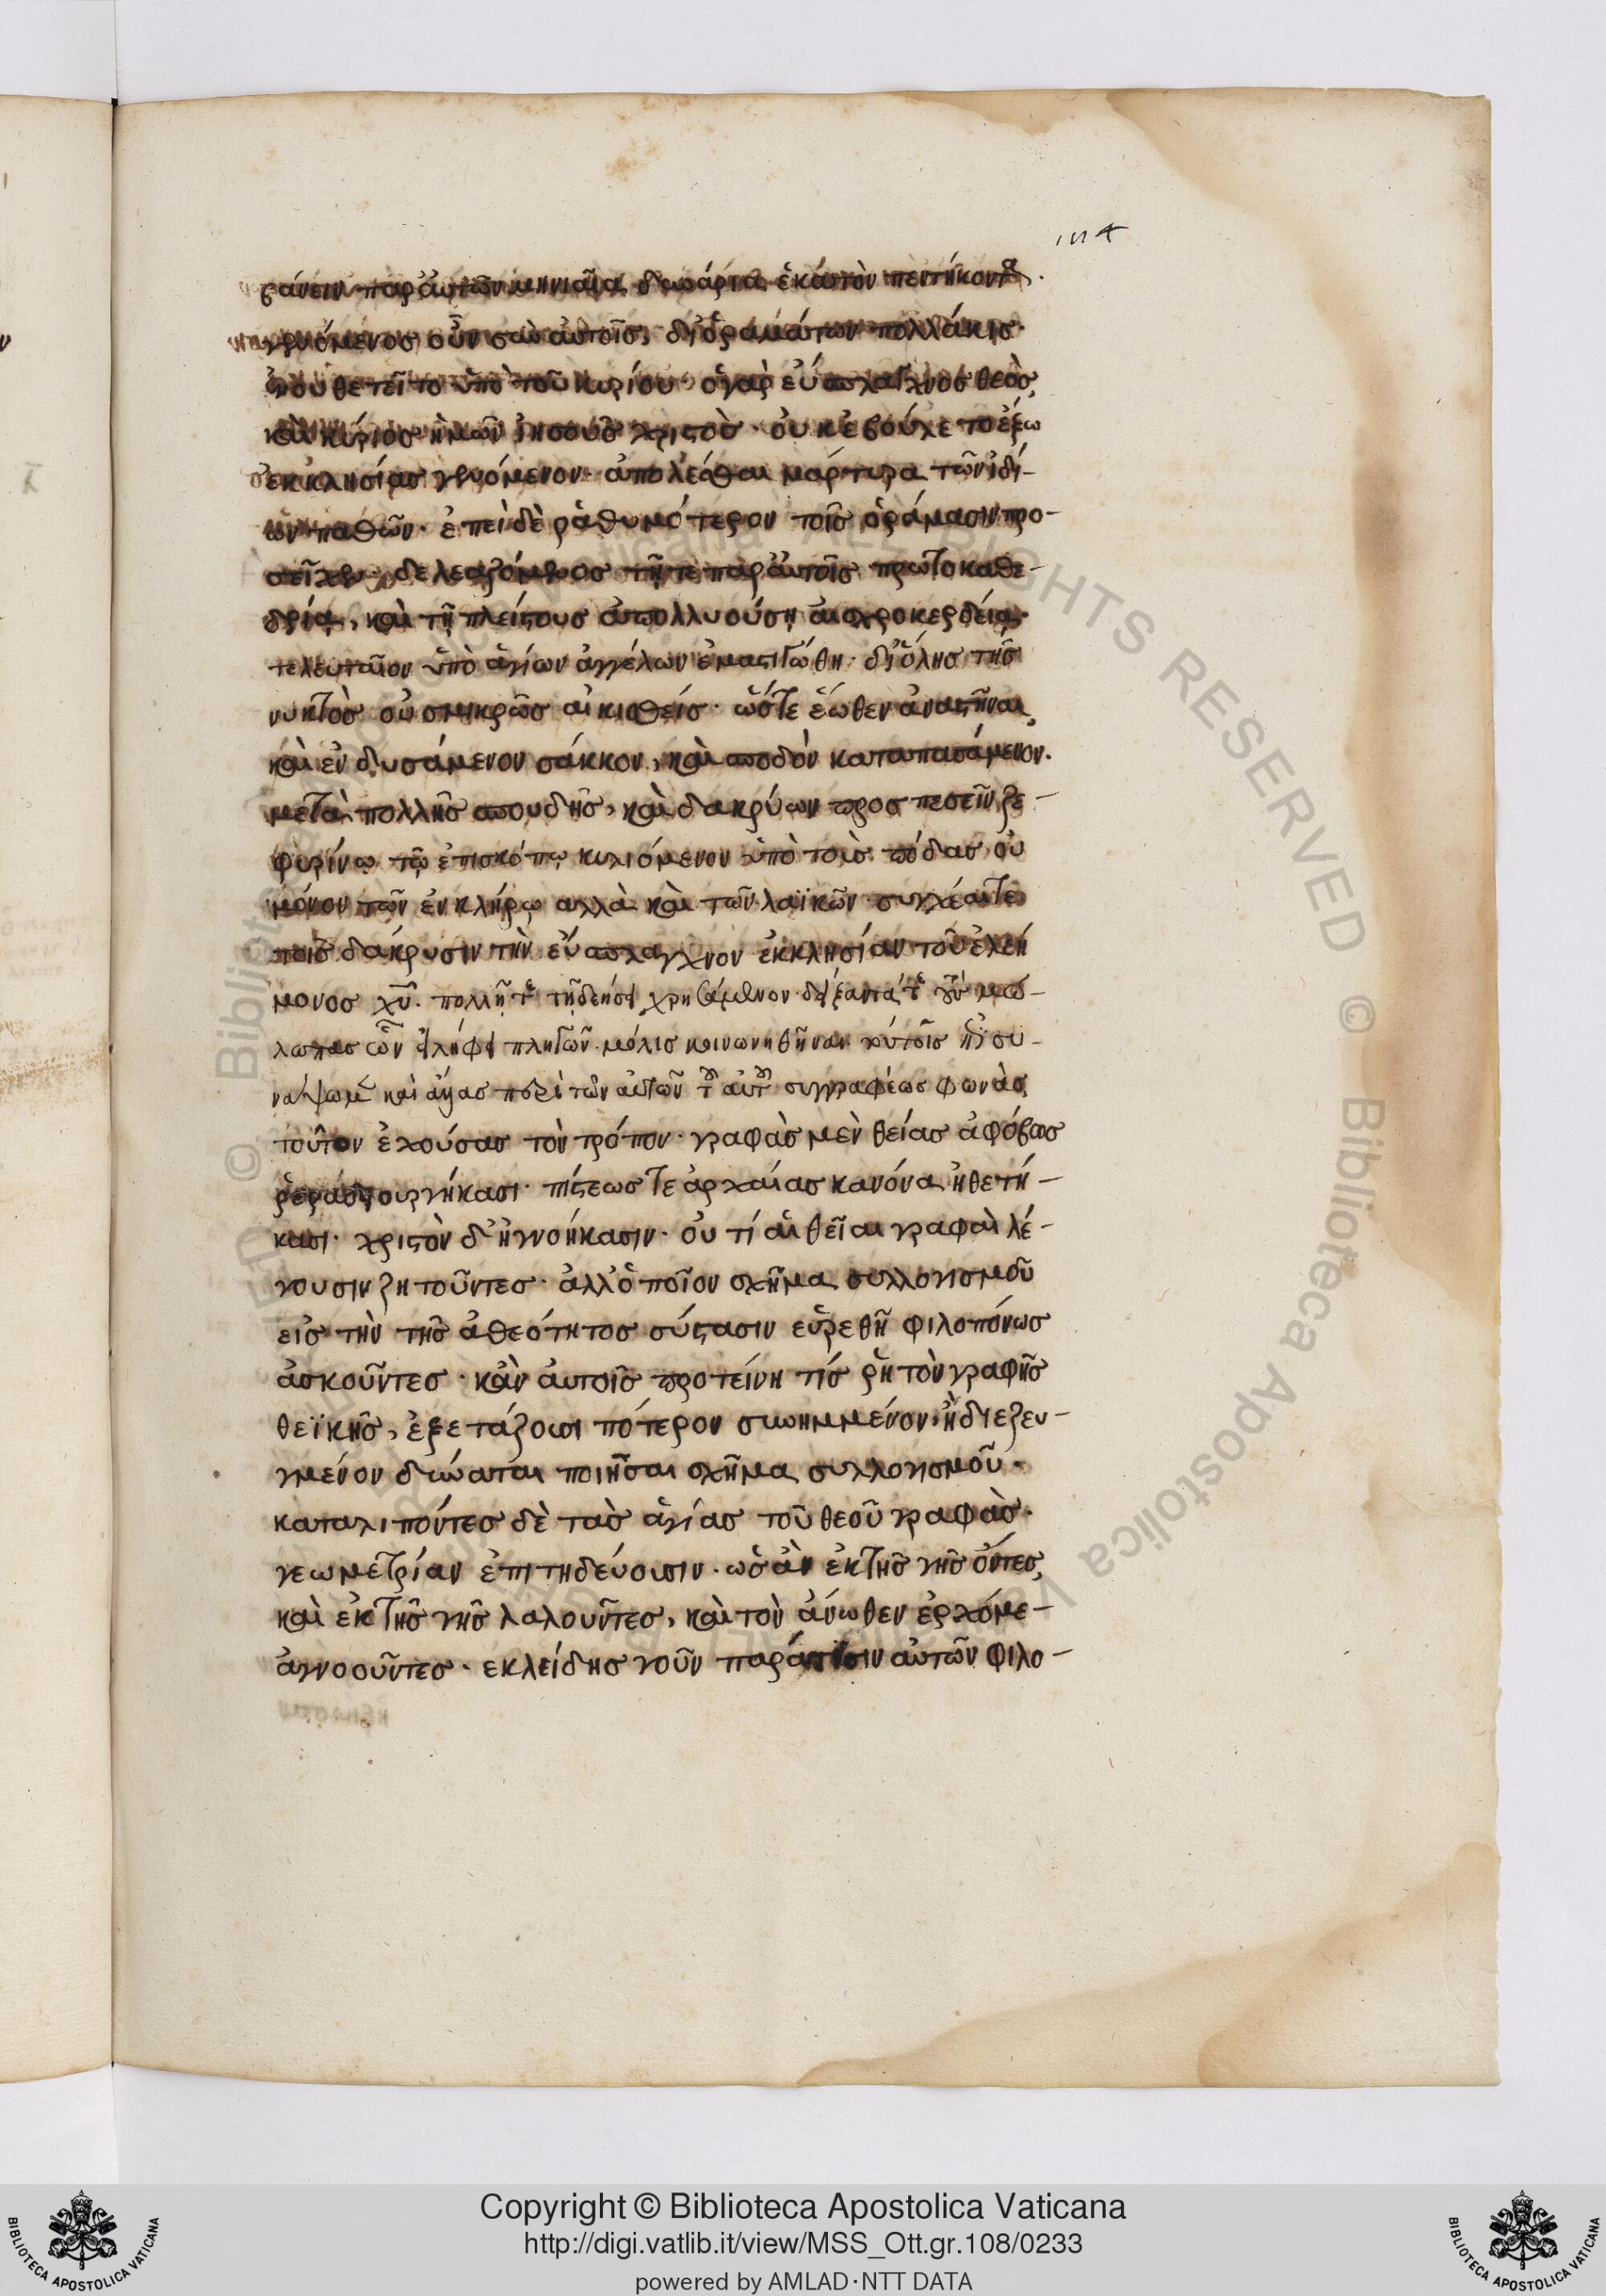 114
βάνειν παρ' αὐτῶν μηνιαῖα δηνάρια ἑκατὸν πεντήκοντα.
γενόμενος οὖν σὺν αὐτοῖς, δι' ὁραμάτων πολλάκις
ἐνουθετεῖτο ὑπὸ τοῦ κυρίου· ὁ γὰρ εὔσπλαγχνος θεὸς
καὶ κύριος ἡμῶν ἰησοῦς χριστὸς· οὐκ ἐβούλετο ἔξω
ἐκκλησίας γενόμενον· ἀπολέσθαι μάρτυρα τῶν ἰδί-
ων παθῶν· ἐπεὶ δὲ ῥαθυμότερον τοῖς ὁράμασιν προ-
σεῖχεν δελεαζόμενος τῇ τε παρ' αὐτοῖς πρωτοκαθε-
δρία, καὶ τῇ πλείστους ἀπολλυούση αἰσχροκερδεία·
τελευταῖον ὑπὸ ἁγίων ἀγγέλων ἐμαστιγώθη· δι' ὅλης τῆς
νυκτὸς οὐ σμικρῶς αἰκισθείς· ὥστε ἕωθεν ἀναστῆναι
καὶ ἐνδυσάμενον σάκκον, καὶ σποδὸν καταπασάμενον.
μετὰ πολλῆς σπουδῆς, καὶ δακρύων προσπεσεῖν ζε-
φυρίνω τῷ ἐπισκόπῳ κυλιόμενον ὑπὸ τοὺς πόδας οὐ
μόνον τῶν ἐν κλήρῳ αλλὰ καὶ τῶν λαϊκῶν· συγχέαι τε
τοῖς δάκρυσιν τὴν εὔσπλαγχνον ἐκκλησίαν τοῦ ἐλεή
μονος χῦ. πολλῇ τε τῇ δεήσει χρησάμενον δείξαντά τε τοὺς μώ-
λωπας ὧν εἰλήφει πληγῶν· μόλις κοινωνηθῆναι τούτοις ἐπισυ-
νάψωμεν καὶ ἄλλας περὶ τῶν αὐτῶν τοῦ αὐτοῦ συγγραφέως φωνὰς
τοῦτον ἐχούσας τὸν τρόπον· γραφὰς μὲν θείας ἀφόβως
ῥεραδιουργήκασι· πίστεως τε ἀρχαίας κανόνα ἠθετή-
κασι· χριστὸν δ' ἠγνοήκασιν· οὐ τί αἱ θεῖαι γραφαὶ λέ-
γουσιν ζητοῦντες· ἀλλ' ὁποῖον σχῆμα συλλογισμοῦ
εἰς τὴν τῆς ἀθεότητος σύστασιν εὑρεθῆ φιλοπόνως
ἀσκοῦντες· κἂν αὐτοῖς προτείνη τίς ῥητὸν γραφῆς
θεϊκῆς, ἐξετάζωσι πότερον συνημμένον ἢ διεζευ-
γμένον δύναται ποιῆσαι σχῆμα συλλογισμοῦ.
καταλιπόντες δὲ τὰς ἁγίας τοῦ θεοῦ γραφὰς·
γεωμετρίαν ἐπιτηδεύουσιν· ὡς ἂν ἐκ τῆς γῆς ὄντες,
καὶ ἐκ τῆς γῆς λαλοῦντες, καὶ τὸν ἄνωθεν ἐρχόμε-
ἀγνοοῦντες· εκλείδης γοῦν παρά τισιν αὐτῶν φιλο-
© Biblioteca Apostolica Vaticana ALL RIGHTS RESERVED
Copyright © Biblioteca Apostolica Vaticana
http://digi.vatlib.it/view/MSS_Ott.gr.108/0233
powered by AMLAD·NTT DATA
BIBLIOTECA APOSTOLICA VATICANA
BIBLIOTECA APOSTOLICA VATICANA